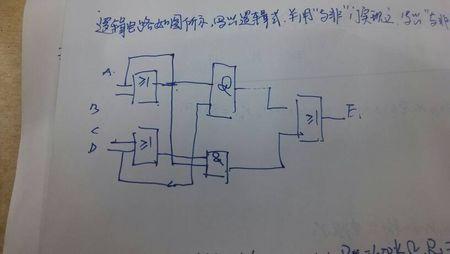 逻辑电路如图所示,写出逻辑式,并用"与非"门实现之,写出"与非
A
≥1
&
B
≥1
E
C
D
≥1
&